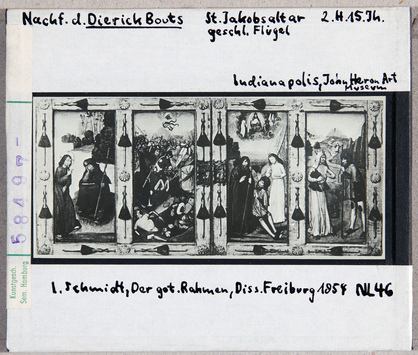 Nachf. d. Dierick Bouts St. Jakobsaltar 2. H. 15. Jh.
geschl. Flügel
Indianapolis, John Heron Art
Museum
58497-
Kunstgesch.
Sem. Hamburg
I. Schmidt, Der got. Rahmen, Diss. Freiburg 1954 NL46